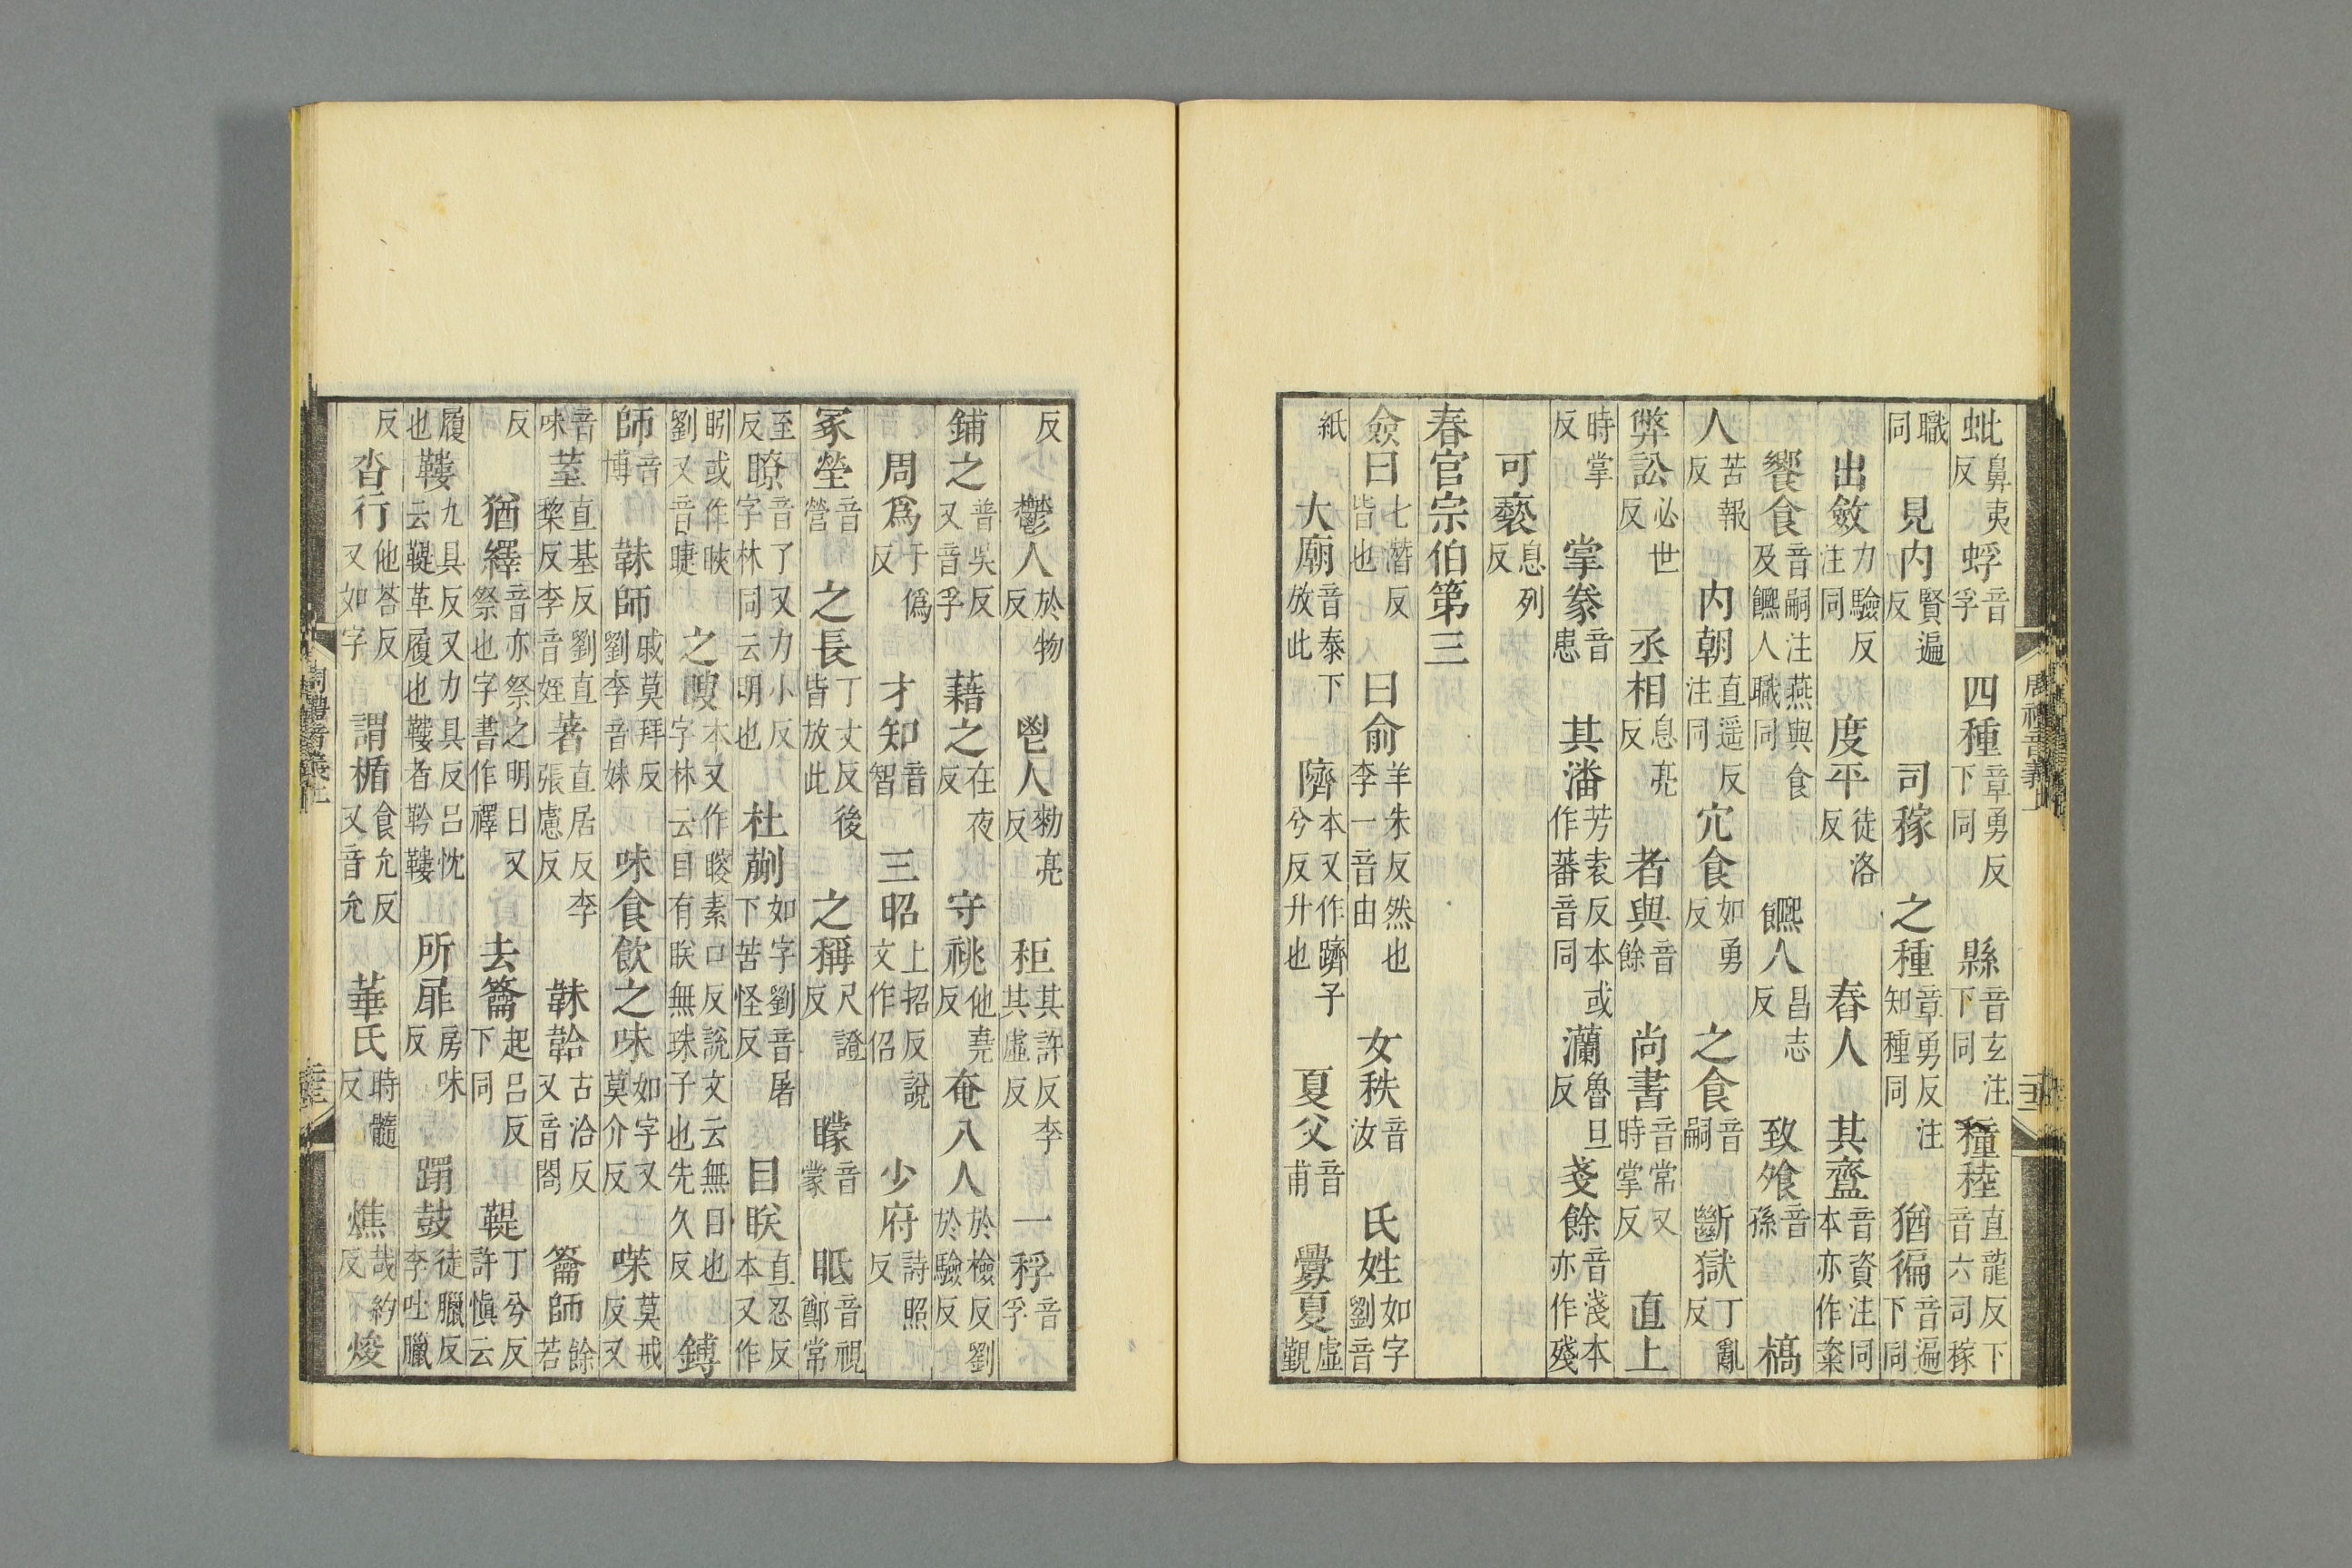 蚍鼻夷反蜉音孚四種章勇反下同縣音玄注下同穜稑直龍反下音六司稼
職同見内賢遍反司稼之種章勇反注知種同猶徧音遍下同
出斂力驗反注同度平徒洛反舂人其齍音資注同本亦作粢
饗食音嗣注燕與食及饎人職同音饎人昌志反致飧音孫槁
人苦報反内朝直遥反注同宂食如勇反之食音嗣斷獄丁亂反
弊訟必世反丞相息亮反者與音餘尚書音常又時掌反直上
時掌反掌豢音患其潘芳袁反本或作蕃音同灡魯旦反戔餘音淺本亦作殘
可褻息列反
春官宗伯第三
僉曰七潛反皆也曰俞羊朱反然也李一音由女秩音汝氏姓如字劉音
紙大廟音泰下放此隮本又作躋子兮反升也夏父音甫釁夏虛覲
反鬱人於物反鬯人勑亮反秬其許反李其虛反一稃音孚
鋪之普吳反又音孚藉之在夜反守祧他堯反奄八人於檢反劉於驗反
周爲于僞反才知音智三昭上招反說文作佋少府詩照反
冢塋音營之長丁丈反後皆放此之稱尺證反矇音蒙眡音視鄭常
至反瞭音了又力小反字林同云明也杜蒯如字劉音屠下苦怪反目眹直忍反本又作
眹或作䀕劉又音睫之瞍本又作䁖素口反說文云無目也字林云目有眹無珠子也先久反鎛
師音博韎師戚莫拜反劉李音妹味食飲之味如字又莫介反㗑莫戒反又
音味莖直基反劉直棃反李音姪著直居反李張慮反韎韐古洽反又音閤籥師餘若
反猶繹音亦祭之明日又祭也字書作襗去籥起呂反下同鞮丁兮反許愼云
履也鞻九具反又力具反呂忱云鞮革履也鞻者䩭鞻所扉房味反蹋鼓徒臘反李吐臘
反沓行他荅反又如字謂楯食允反又音允菙氏時髓反燋哉約反焌
周禮音義上
周禮音義上